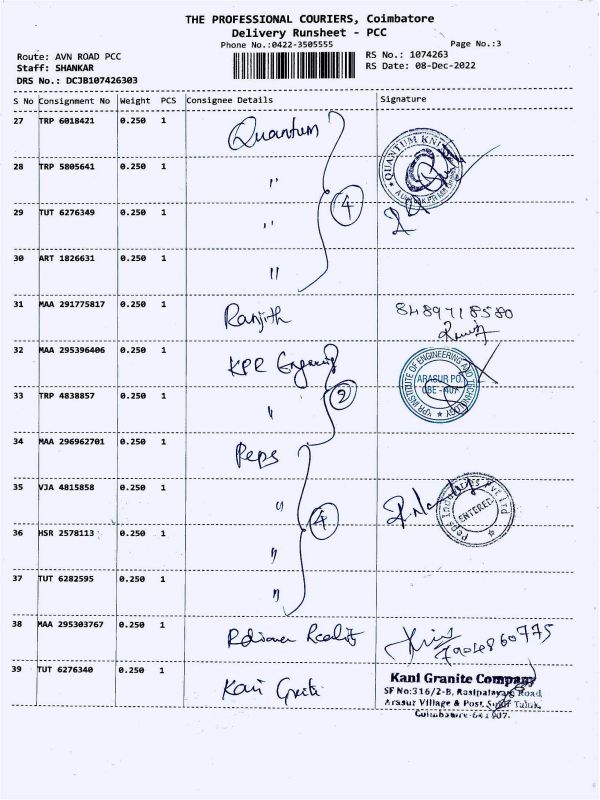 THE PROFESSIONAL COURIERS, Coimbatore
Delivery Runsheet - PCC
Phone No.:0422-3505555
Page No.:3
Route: AVN ROAD PCC
RS No.: 1074263
Staff: SHANKAR
RS Date: 08-Dec-2022
DRS No.: DCJB107426303
S No Consignment No Weight PCS Consignee Details Signature
27 TRP 6018421 0.250 1 Quantum
QUANTUM KNIT
28 TRP 5805641 0.250 1 "
4
29 TUT 6276349 0.250 1 "
30 ART 1826631 0.250 1 "
31 MAA 291775817 0.250 1 Ranjith 8489718580
32 MAA 295396406 0.250 1 KPR
KPR INSTITUTE OF ENGINEERING AND TECHNOLOGY
ARASUR PO.
CBE - 407
33 TRP 4838857 0.250 1 "
2
34 MAA 296962701 0.250 1 Peps
35 VJA 4815858 0.250 1 "
4
Peps Industries Pvt Ltd
ENTERED
36 HSR 2578113 0.250 1 "
37 TUT 6282595 0.250 1 "
38 MAA 295303767 0.250 1 7904860775
39 TUT 6276340 0.250 1 Kani
Kani Granite Company
SF No:316/2-B, Rasipalayam Road
Arasur Village & Post, Sulur Taluk,
Coimbatore-641 407.